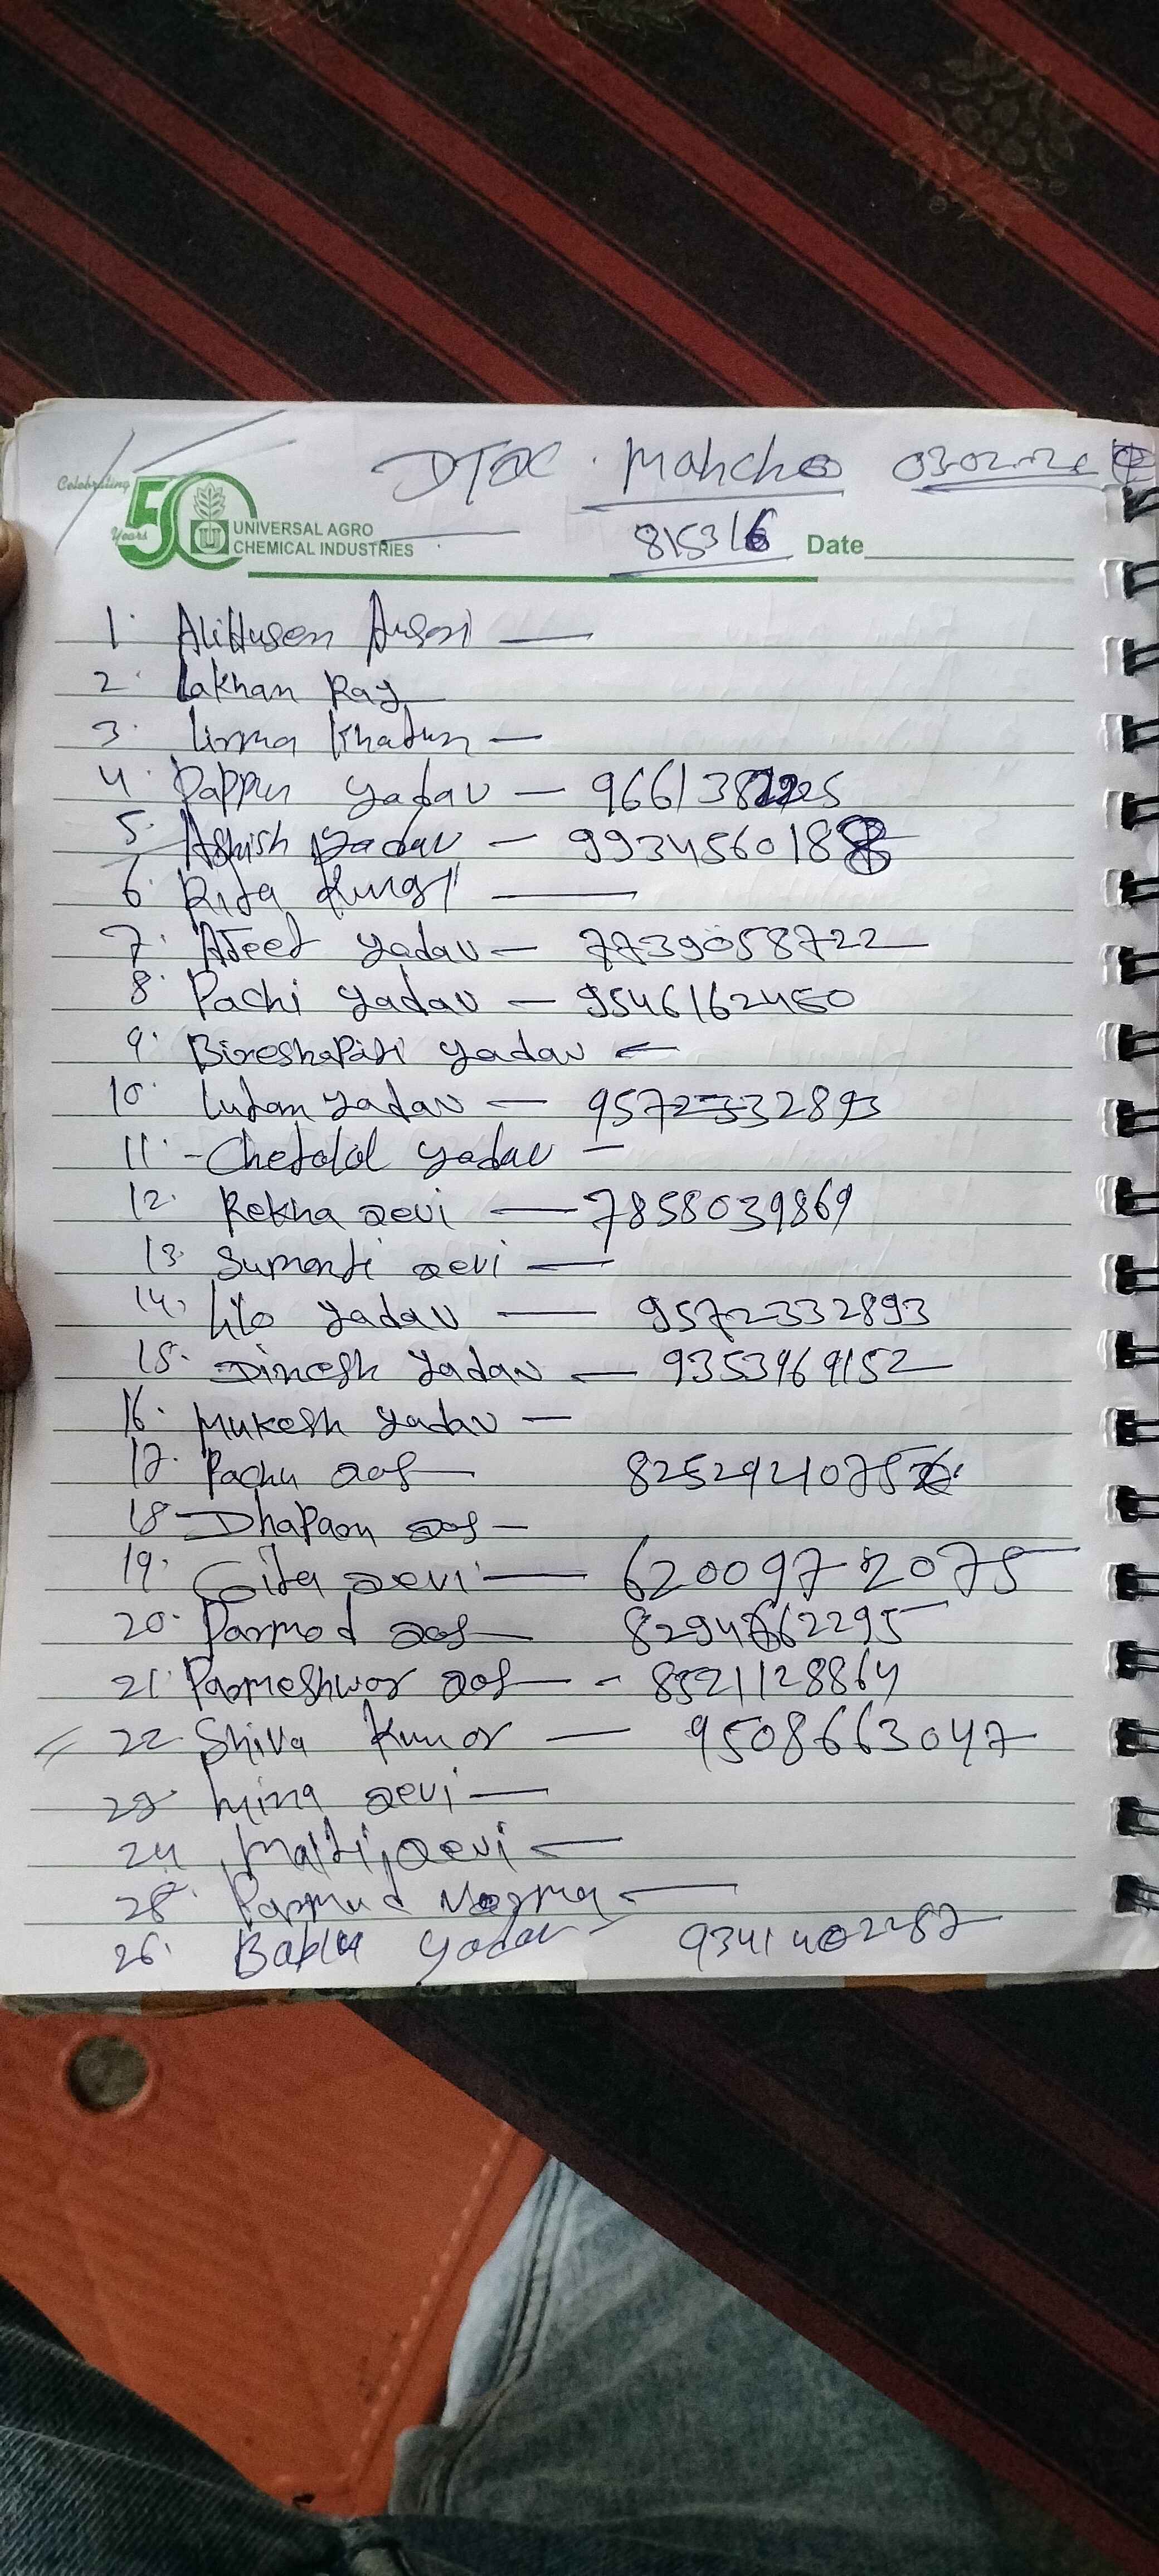 DTDC. Mahcho 03.02.26
Celebrating 50 Years
UNIVERSAL AGRO
CHEMICAL INDUSTRIES
815316 Date
1. AliHusen Ansari —
2. Lakhan Ray
3. Khatun —
4. Pappu yadav —
5. Ashish yadav — 9934560188
6. Rita —
7. AJeet yadav — 7739058722
8. Pachi yadav — 9546162450
9. Bireshapati yadav —
10. yadav — 9572332893
11. - Chetalal yadav —
12. Rekha Devi — 7858039869
13. Sumanti Devi —
14. Lilo yadav — 9572332893
15. Dinesh yadav — 9353969152
16. Mukesh yadav —
17. Pachu Das
18. Das —
19. Gita Devi — 6200972075
20. Parmod Das
21. Parmeshwar Das — - 8521128864
22 Shiva Kumar — 9508663047
23. Devi —
24 Malti Devi —
25.
26. Bablu yadav - 9341402287